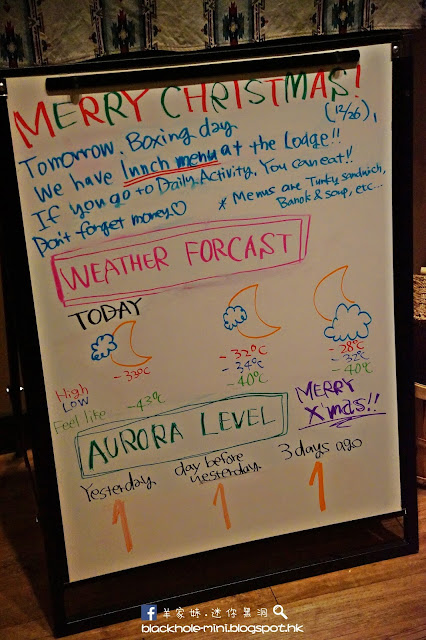 MERRY CHRISTMAS!
Tomorrow. Boxing day (12/26),
We have lunch menu at the Lodge!!
If you go to Daily Activity. You can eat!!
Don't forget money♡ * Menus are Turky sandwich,
Banok & soup, etc...
WEATHER FORCAST
TODAY
High -33°C -32°C -28°C
LOW -34°C -32°C
Feel like -43°C -40°C -40°C
MERRY
Xmas!!
AURORA LEVEL
Yesterday day before yesterday 3 days ago
1 1 1
羊家妹.迷你黑洞
blackhole-mini.blogspot.hk